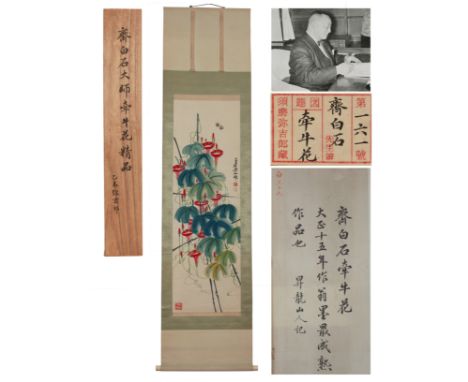 齊白石大師牽牛花精品
第一六一號
齊白石先生
牽牛花
須磨弥吉郎藏
齊白石牽牛花
大正十五年作翁墨最成熟
作品也 昇龍山人記